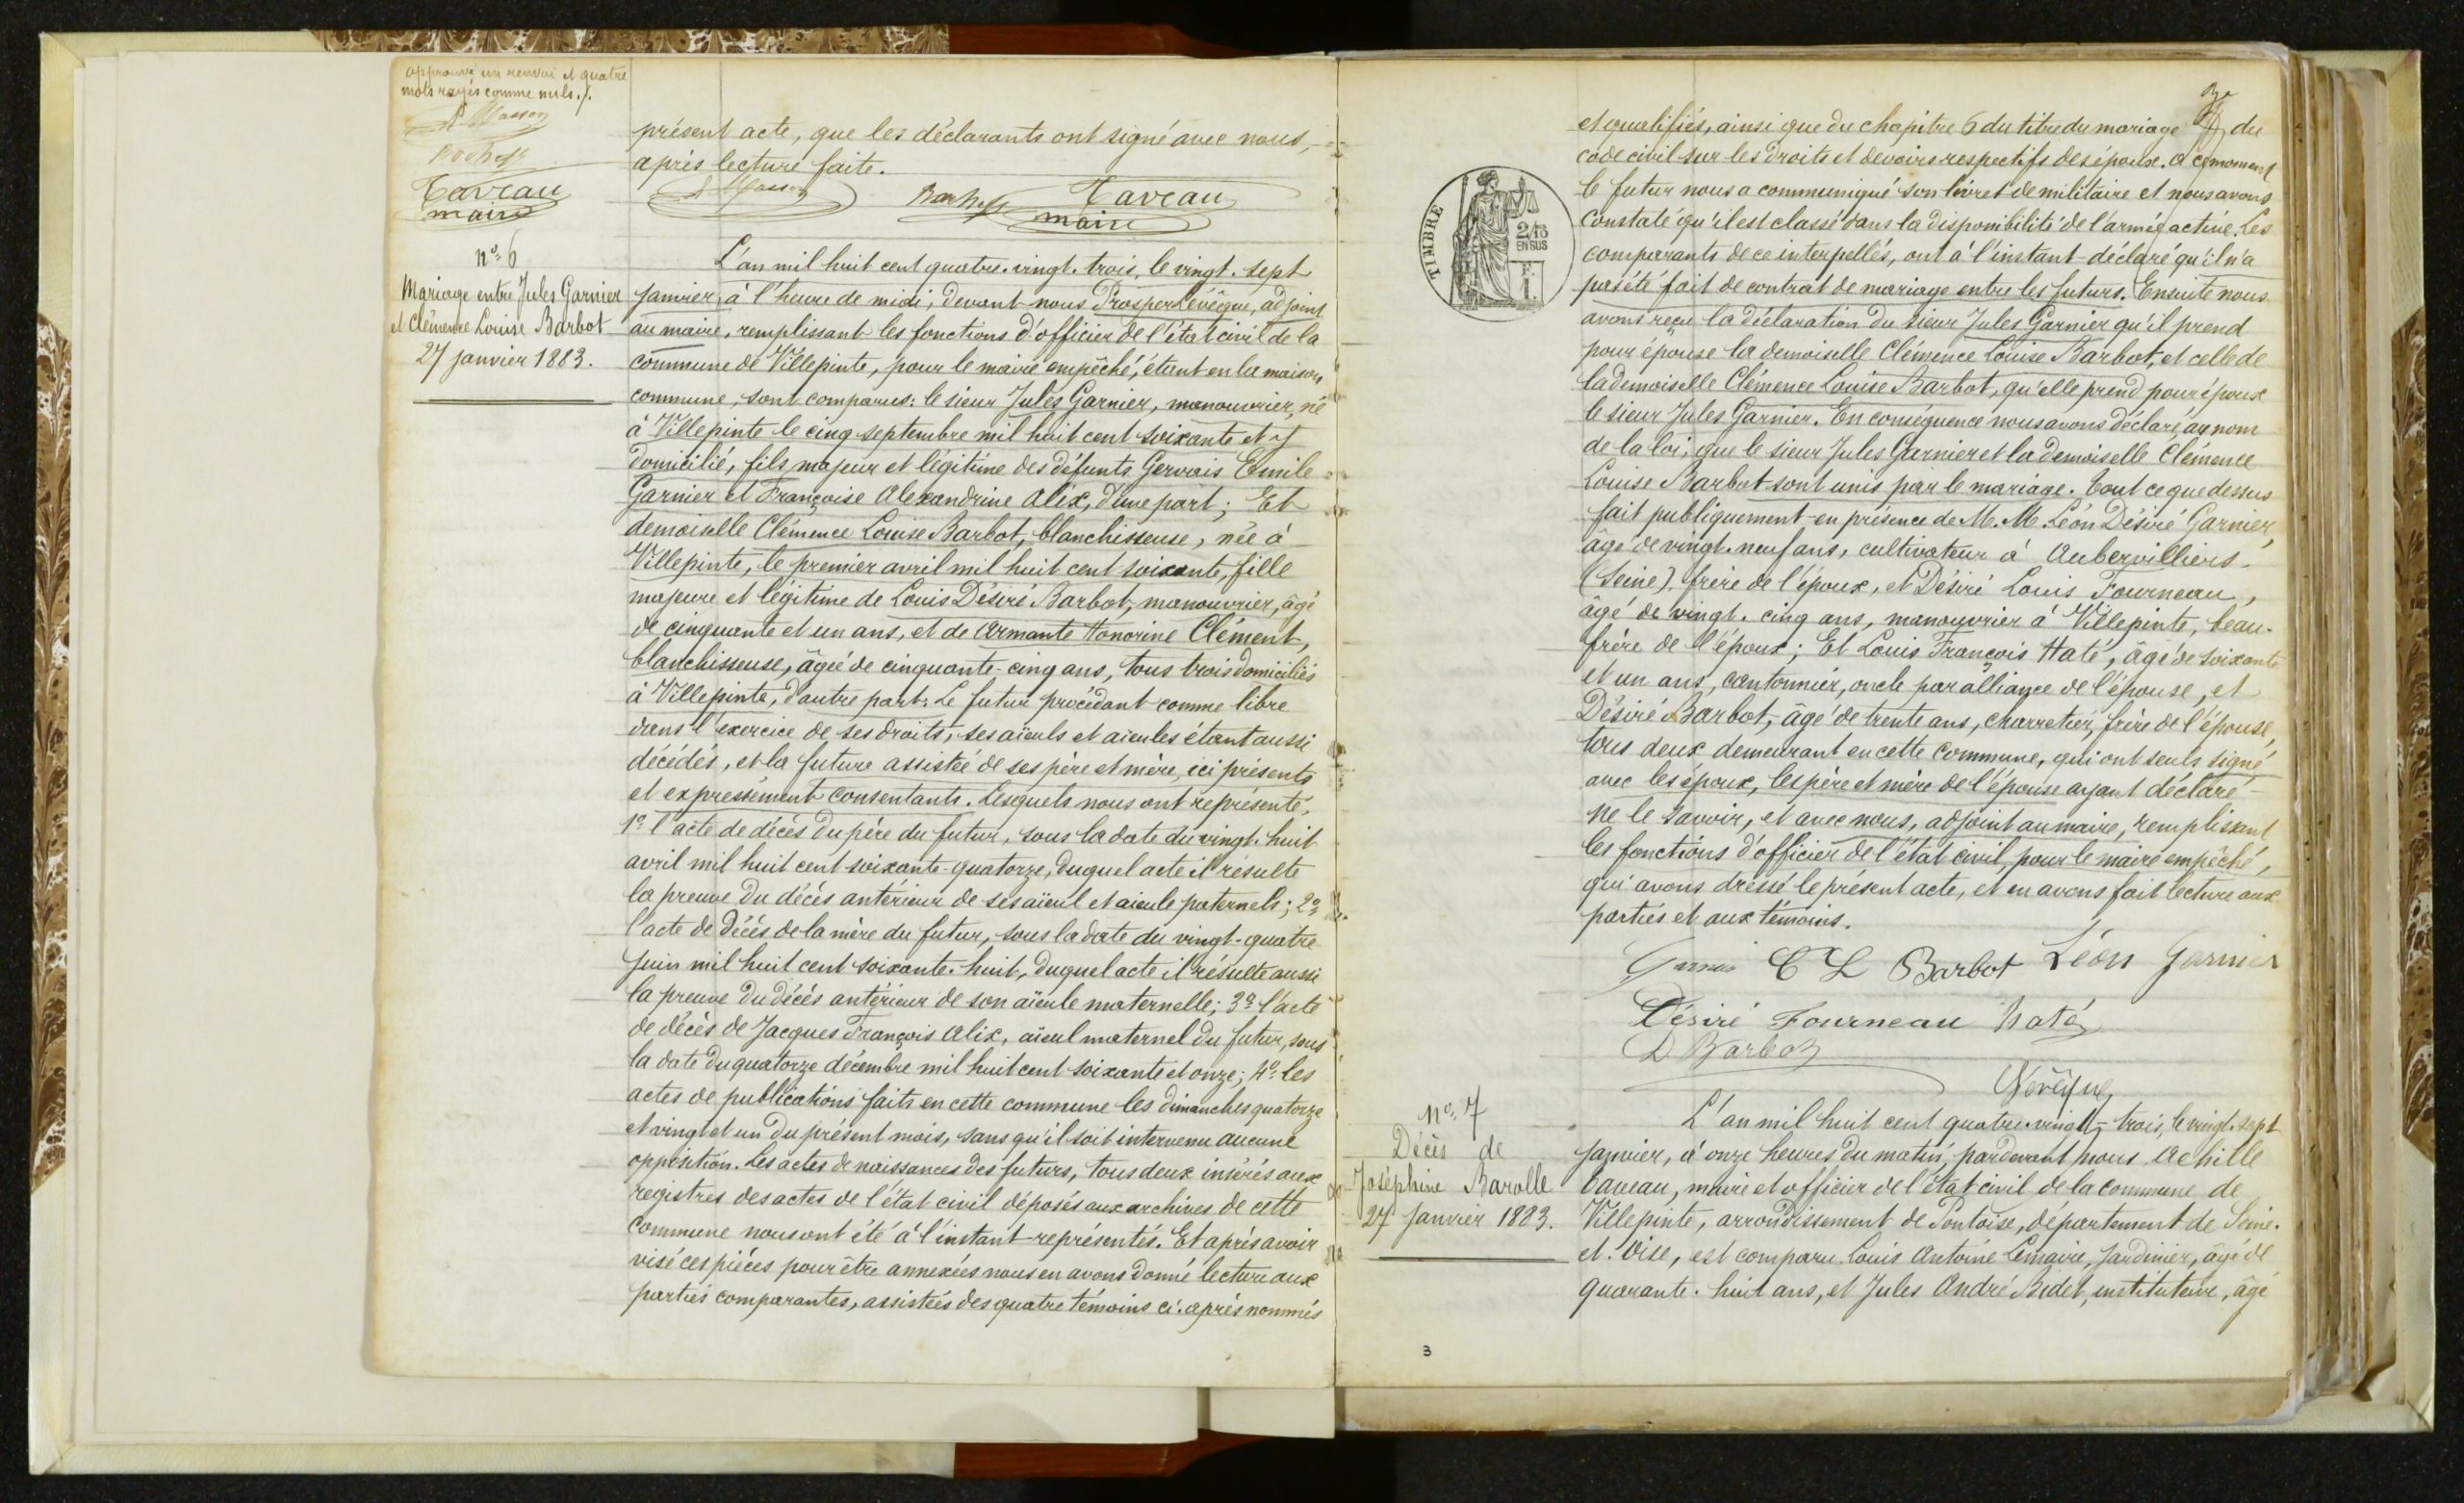 approuvé un renvoi et quatre
mots rayés comme nuls ./.
A Masson
Taveau
maire
présent acte, que les déclarants ont signé avec nous,
après lecture faite.
A Masson Taveau
maire
nº 6
Mariage entre Jules Garnier
et Clémence Louise Barbot
27 janvier 1883.
L'an mil huit cent quatre-vingt-trois, le vingt-sept
janvier, à l'heure de midi, devant nous Prosper Lévêque, adjoint
au maire, remplissant les fonctions d'officier de l'état civil de la
commune de Villepinte, pour le maire empêché, étant en la maison
commune, sont comparus: le sieur Jules Garnier, manouvrier, né
à Villepinte le cinq septembre mil huit cent soixante et y
domicilié, fils majeur et légitime des défunts Gervais Emile
Garnier et Françoise Alexandrine Alix, d'une part; Et
demoiselle Clémence Louise Barbot, blanchisseuse, née à
Villepinte, le premier avril mil huit cent soixante, fille
majeure et légitime de Louis Désiré Barbot, manouvrier, âgé
de cinquante et un ans, et de Armante Honorine Clément,
blanchisseuse, âgée de cinquante-cinq ans, tous trois domiciliés
à Villepinte, d'autre part. Le futur procédant comme libre
dans l'exercice de ses droits, ses aïeuls et aïeules étant aussi
décédés, et la future assistée de ses père et mère, ici présents
et expressément consentants. Lesquels nous ont représenté,
1º l'acte de décès du père du futur, sous la date du vingt-huit
avril mil huit cent soixante-quatorze, duquel acte il résulte
la preuve du décès antérieur de ses aïeul et aïeule paternels; 2º
l'acte de décès de la mère du futur, sous la date du vingt-quatre
juin mil huit cent soixante-huit, duquel acte il résulte aussi
la preuve du décès antérieur de son aïeule maternelle; 3º l'acte
de décès de Jacques François Alix, aïeul maternel du futur, sous
la date du quatorze décembre mil huit cent soixante et onze; 4º les
actes de publications faits en cette commune les dimanches quatorze
et vingt et un du présent mois, sans qu'il soit intervenu aucune
opposition. Les actes de naissances des futurs, tous deux insérés aux
registres des actes de l'état civil déposés aux archives de cette
commune nous ont été à l'instant représentés. Et après avoir
visé ces pièces pour être annexées nous en avons donné lecture aux
parties comparantes, assistées des quatre témoins ci-après nommés
TIMBRE
2/10
EN SUS
F.
1.
et qualifiés, ainsi que du chapitre 6 du titre du mariage du
code civil sur les droits et devoirs respectifs des époux. A ce moment
le futur nous a communiqué son livret de militaire et nous avons
constaté qu'il est classé dans la disponibilité de l'armée active. Les
comparants de ce interpellés, ont à l'instant déclaré qu'il n'a
pas été fait de contrat de mariage entre les futurs. Ensuite nous
avons reçu la déclaration du sieur Jules Garnier qu'il prend
pour épouse la demoiselle Clémence Louise Barbot, et celle de
la demoiselle Clémence Louise Barbot, qu'elle prend pour époux
le sieur Jules Garnier. En conséquence nous avons déclaré, au nom
de la loi, que le sieur Jules Garnier et la demoiselle Clémence
Louise Barbot sont unis par le mariage. Tout ce que dessus
fait publiquement en présence de M. M. Léon Désiré Garnier,
âgé de vingt-neuf ans, cultivateur à Aubervilliers
(Seine), frère de l'époux, et Désiré Louis Fourneau,
âgé de vingt-cinq ans, manouvrier à Villepinte, beau-
frère de l'époux; Et Louis François Haté, âgé de soixante
et un ans, cantonnier, oncle par alliance de l'épouse, et
Désiré Barbot, âgé de trente ans, charretier, frère de l'épouse,
tous deux demeurant en cette commune, qui ont seuls signé
avec les époux, les père et mère de l'épouse ayant déclaré
ne le savoir, et avec nous, adjoint au maire, remplissant
les fonctions d'officier de l'état civil, pour le maire empêché,
qui avons dressé le présent acte, et en avons fait lecture aux
parties et aux témoins.
Garnier C L Barbot Léon Garnier
Désiré Fourneau Haté
D Barbot
Lévêque
nº 7
Décès de
Joséphine Barolle
27 Janvier 1883.
L'an mil huit cent quatre-vingt-trois, le vingt-sept
janvier, à onze heures du matin, par devant nous Achille
Taveau, maire et officier de l'état civil de la commune de
Villepinte, arrondissement de Pontoise, département de Seine-
et-Oise, est comparu Louis Antoine Lemaire, jardinier, âgé de
quarante-huit ans, et Jules André Bidet, instituteur, âgé
3